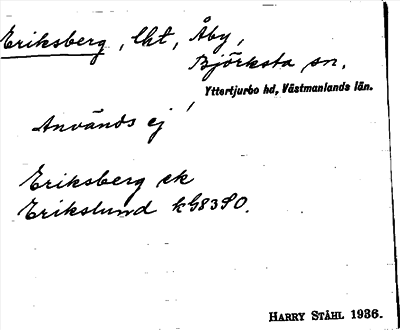 Eriksberg, lht, Åby,
Björksta sn.
Yttertjurbo hd, Västmanlands län.
Används ej
Eriksberg ek
Erikslund
HARRY STÅHL 1936.